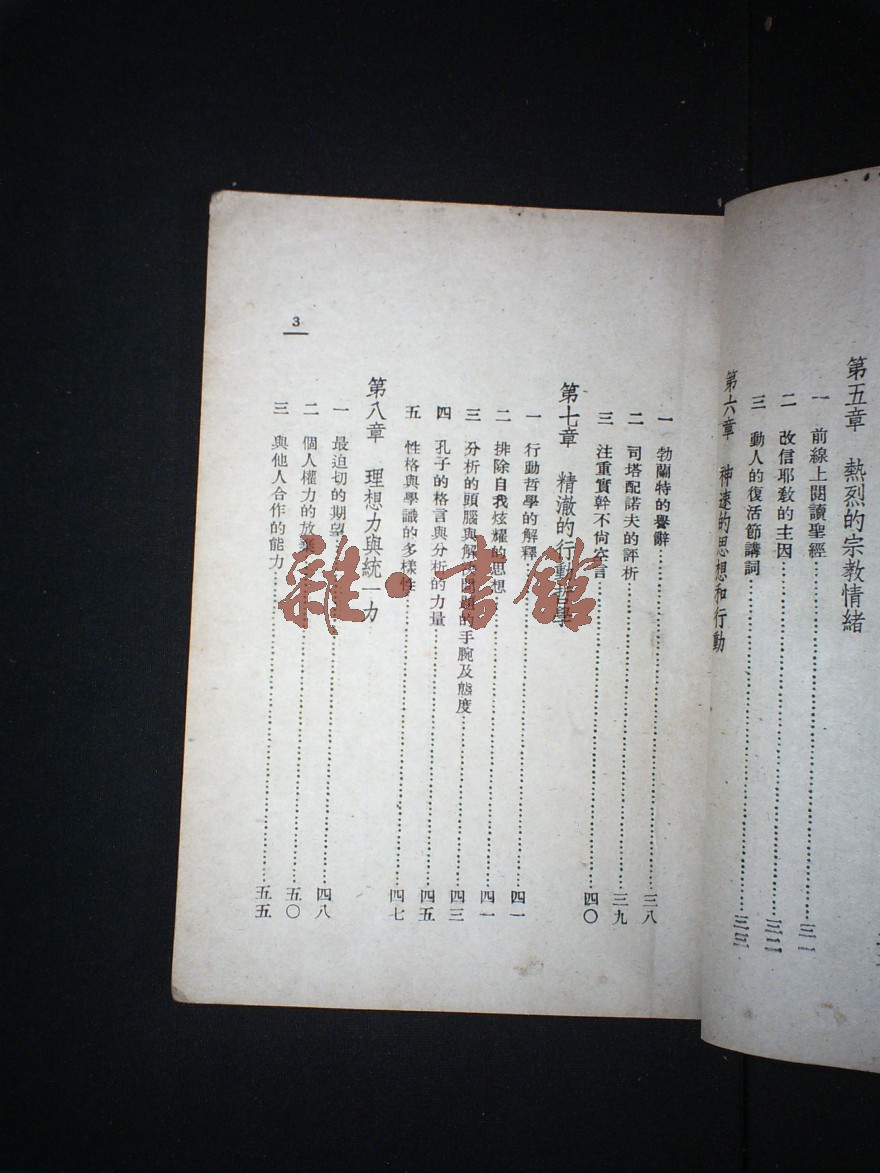 第五章 熱烈的宗教情緒
一 前線上閱讀聖經 三一
二 改信耶教的主因 三二
三 動人的復活節講詞 三三
第六章 神速的思想和行動
一 勃蘭特的譽辭 三八
二 司塔配諾夫的評析 三九
三 注重實幹不尚空言 四〇
第七章 精澈的行動哲學
一 行動哲學的解釋 四一
二 排除自我炫耀的思想 四一
三 分析的頭腦與解決問題的手腕及態度 四三
四 孔子的格言與分析的力量 四五
五 性格與學識的多樣性 四七
第八章 理想力與統一力
一 最迫切的期望 四八
二 個人權力的放棄 五〇
三 與他人合作的能力 五五
3
雜·書館